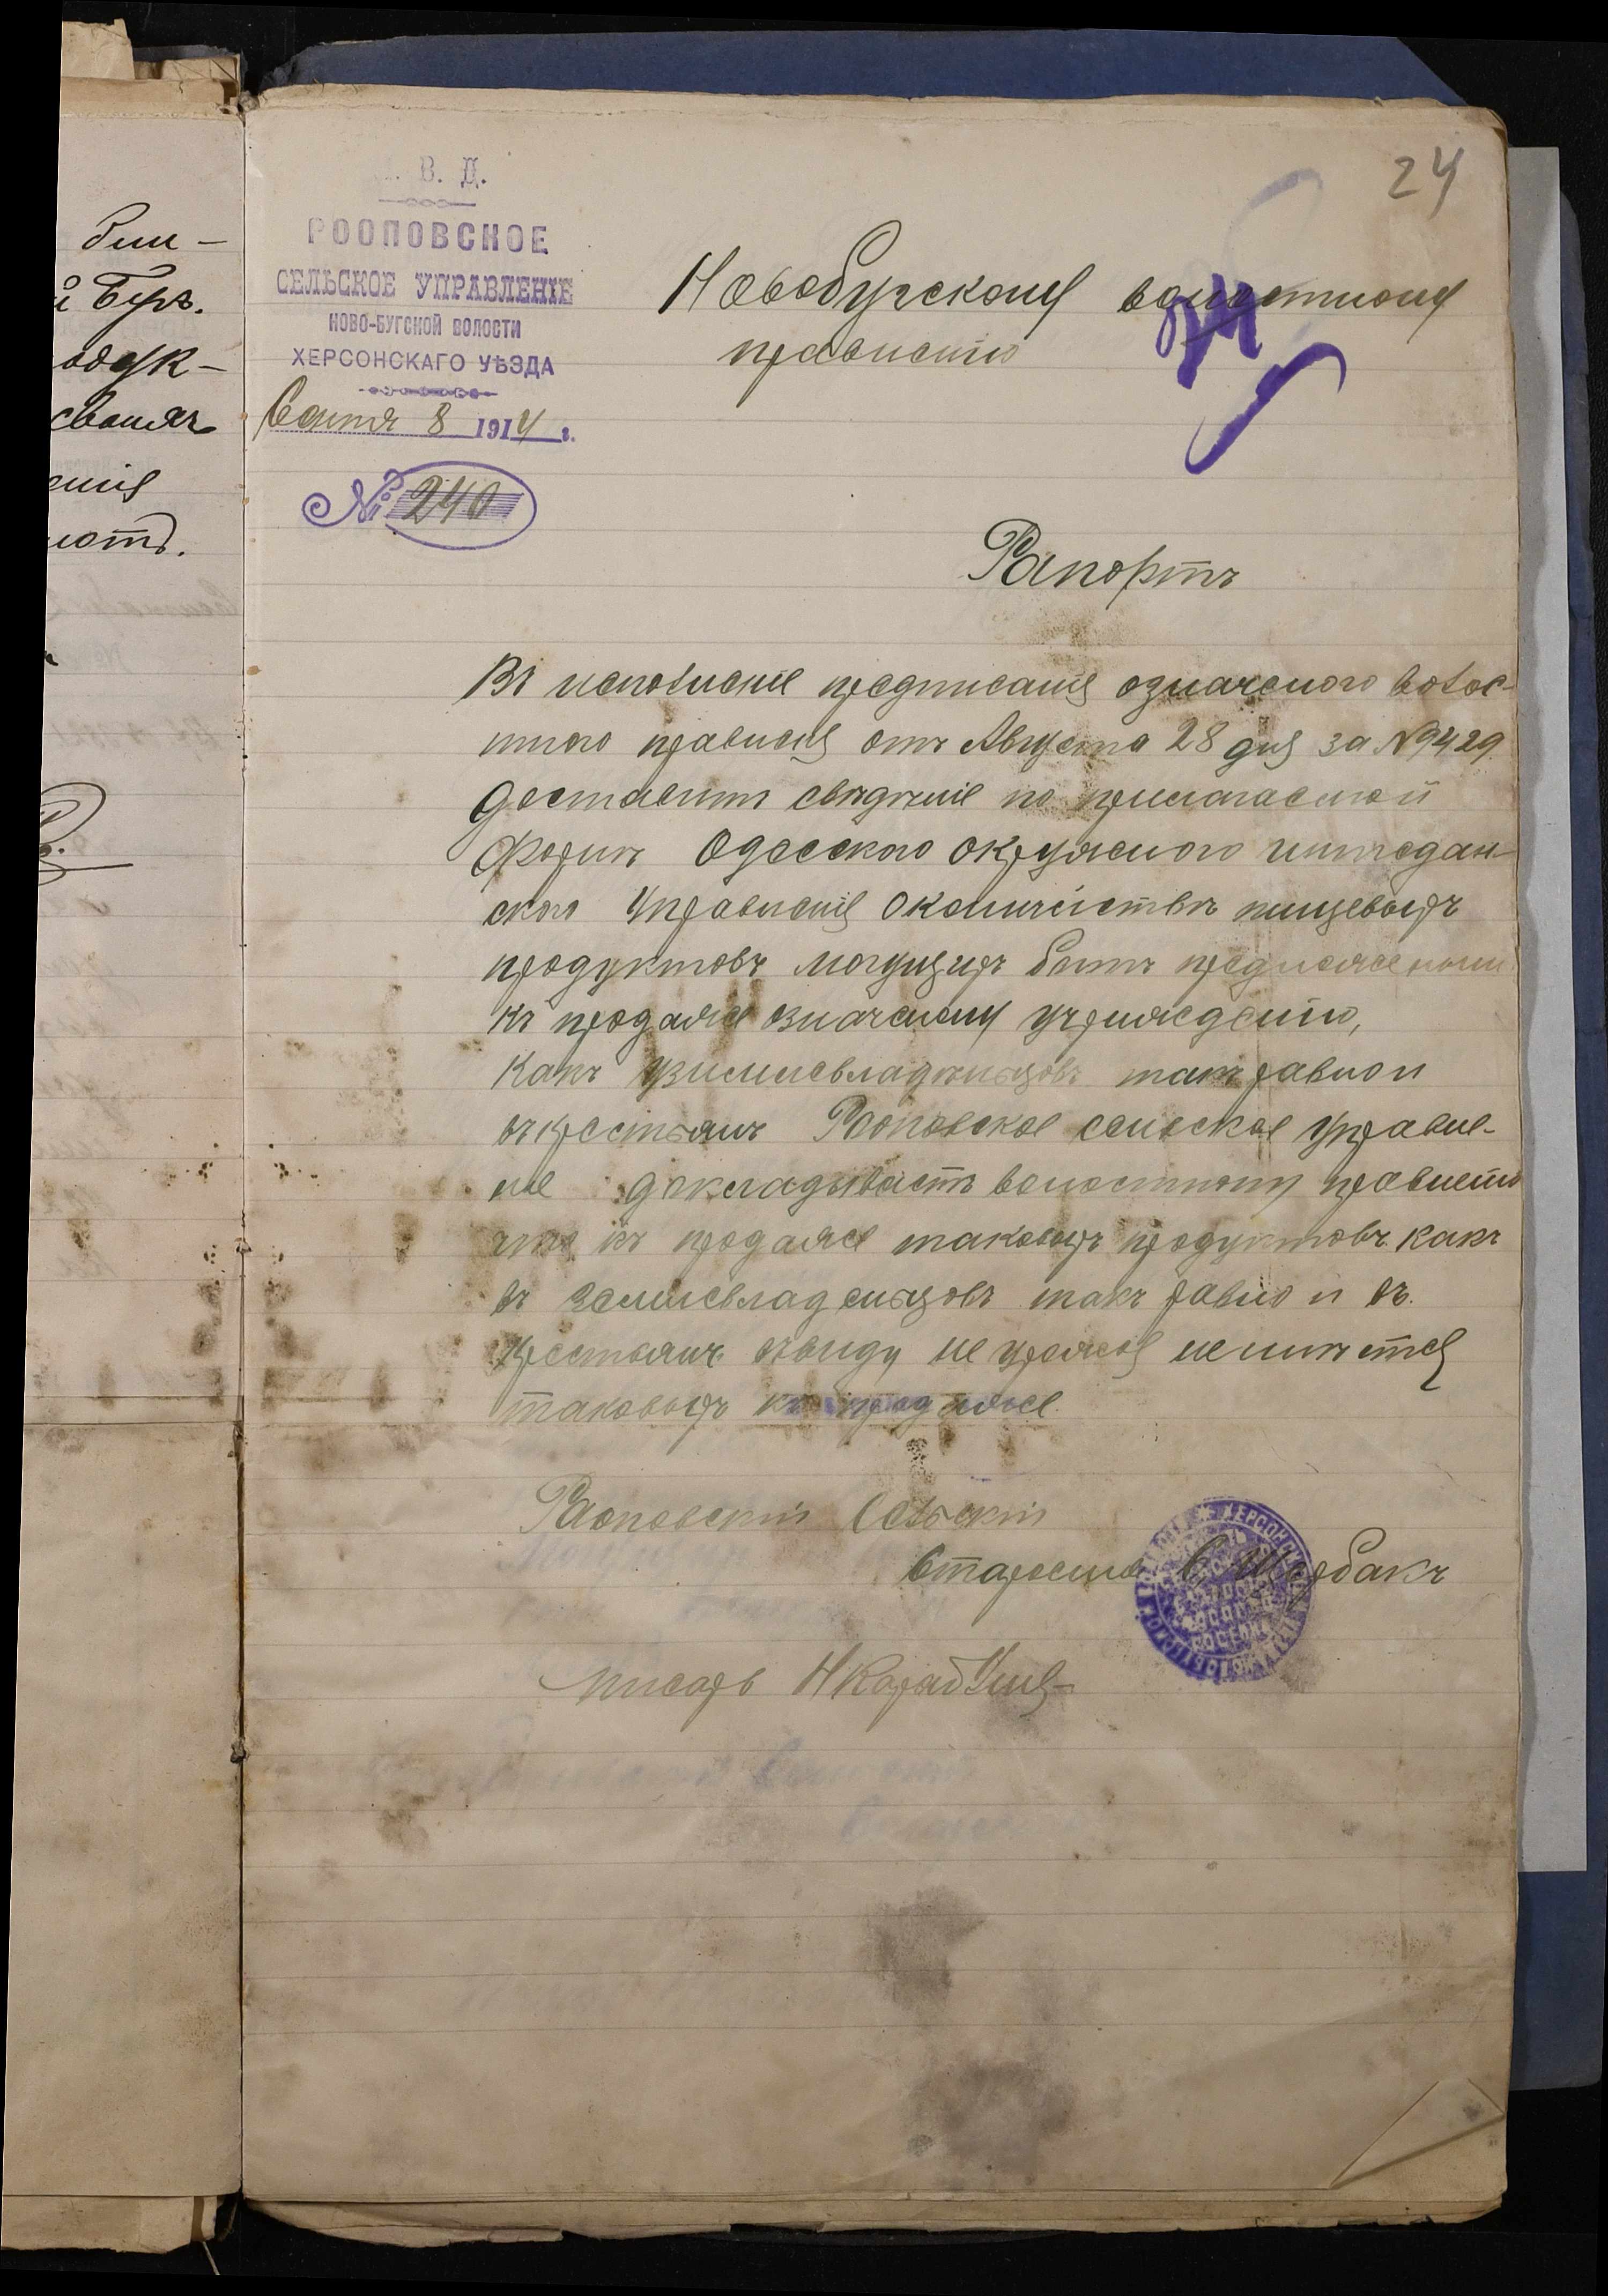 24
В. Д.
РООПОВСКОЕ
СЕЛЬСКОЕ УПРАВЛЕНІЕ
НОВО-БУГСКОЙ ВОЛОСТИ
ХЕРСОНСКАГО УѢЗДА
Сентя 8 1914 г.
№ 240
Новобугскому волостному
правленію
Рапортъ
Въ исполненіе предписанія означеного волос-
тного правленія отъ Августа 28 дня за № 9429
доставит свѣдѣніе по прилагаемой
формѣ Одесского окружного интендан-
ского Управленія о количіствѣ пищевыхъ
продуктовъ могущихъ быть предложеными
къ продаже означеному учрижденію,
Какъ узимлевладѣльцовъ такъ равно и
въкрестьянъ Рооповское сельское управле-
ние докладываетъ волостному правлению
что къ продаже таковыхъ продуктовъ какъ
въ землевладельцовъ такъ равно и въ
крестьянъ ввиду не урожая не имѣется
таковыхъ к продаже.
Рооповскій Сельскій
Староста С. Щербакъ
писарь Н
бии-
й Бугъ.
одук-
ніия
ютъ.